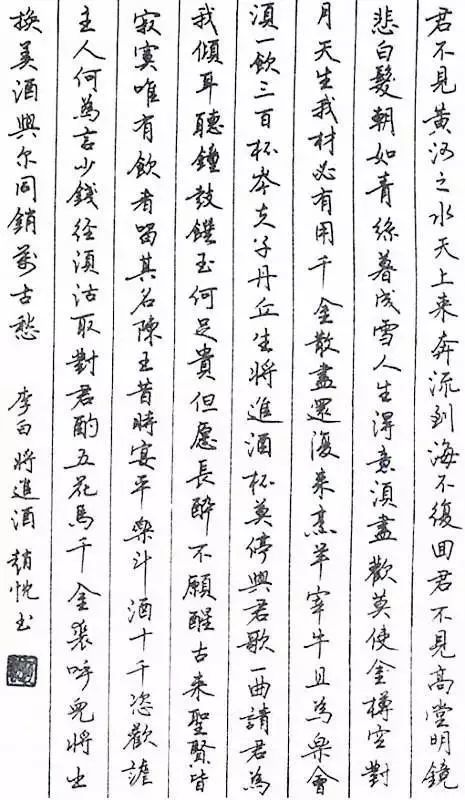 君不見黃河之水天上来奔流到海不復回君不見高堂明鏡
悲白髮朝如青絲暮成雪人生得意須盡歡莫使金樽空對
月天生我材必有用千金散盡還復来烹羊宰牛且為樂會
須一飲三百杯岑夫子丹丘生將進酒杯莫停與君歌一曲請君為
我傾耳聽鐘鼓饌玉何足貴但願長醉不願醒古来聖賢皆
寂寞唯有飲者留其名陳王昔時宴平樂斗酒十千恣歡謔
主人何為言少錢径須沽取對君酌五花馬千金裘呼兒將出
換美酒與尔同銷萬古愁 李白將進酒 趙忱玉